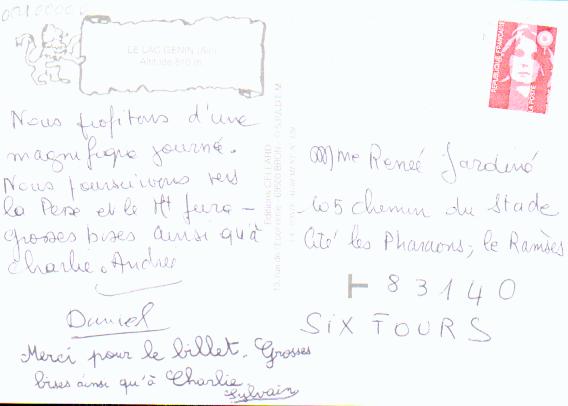 LE LAC GENIN (Ain)
Altitude 810 m
Nous profitons d'une
magnifique journé.
Nous poursuivons vers
la Perse et le Ht Jura -
grosses bises ainsi qu'à
Charlie. Andrée
Daniel
Merci pour le billet. Grosses
bises ainsi qu'à Charlie
Sylvain
REPUBLIQUE FRANÇAISE
LA POSTE
Mme Reneé Jardinó
105 chemin du Stade
Cité les Pharaons, le Ramsès
83140
SIX FOURS
Editions CELLARD